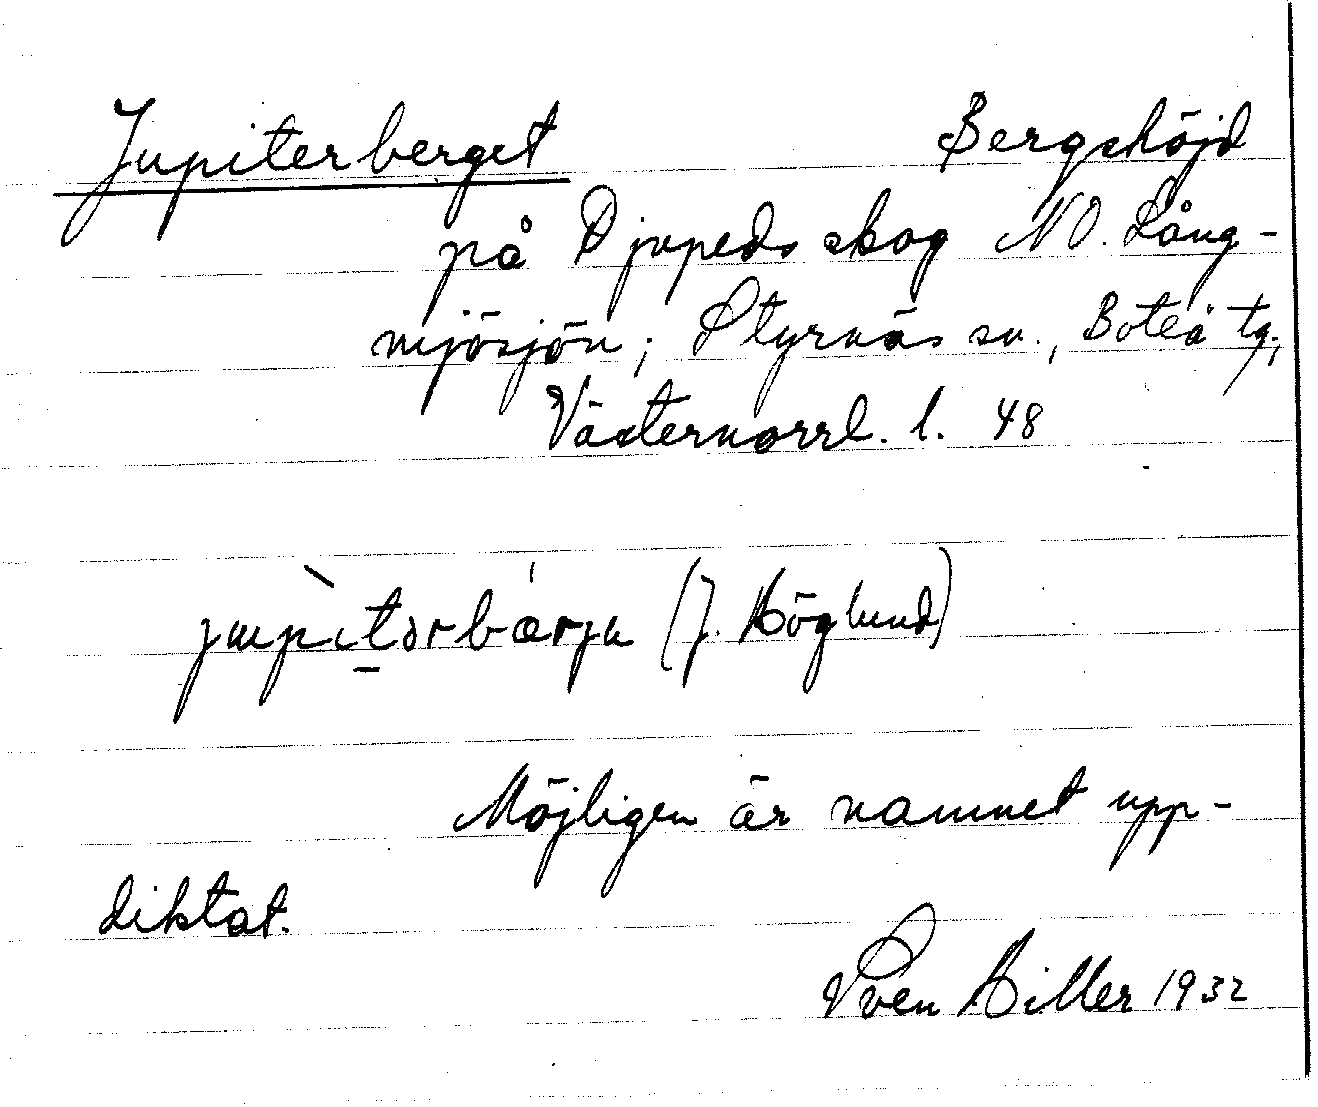 Jupiterberget Bergshöjd
på Djupeds skog NO. Lång-
mjösjön; Styrnäs sn., Boteå tg.,
Västernorrl. l. 48
(J. Höglund)
Möjligen är namnet upp-
diktat.
Sven Hiller 1932